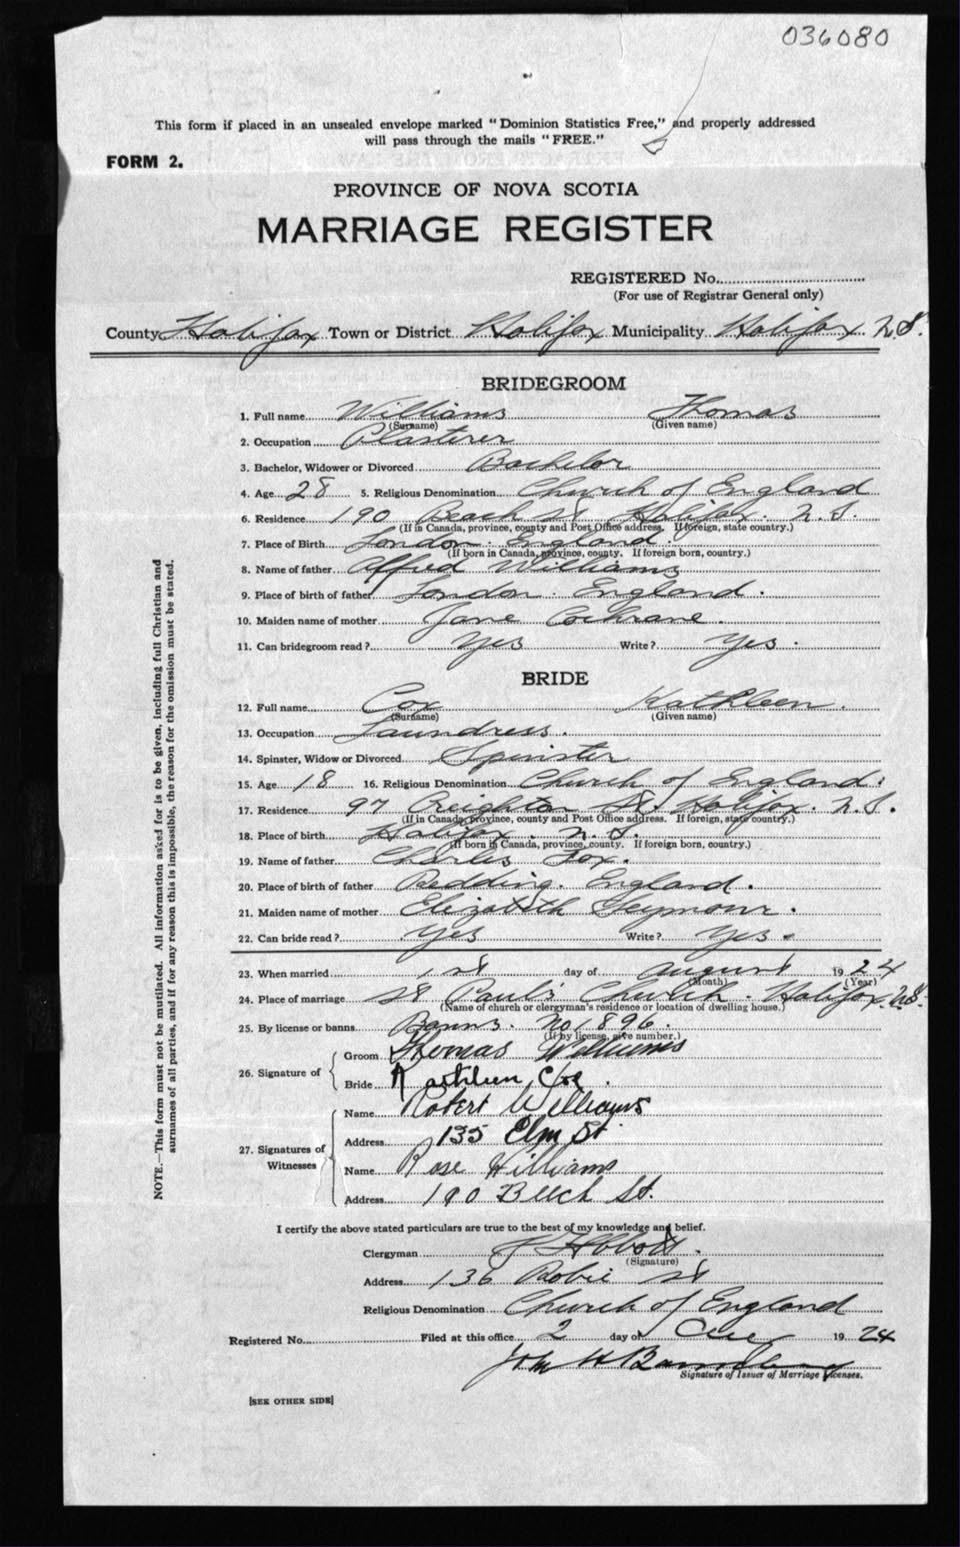 036080
This form if placed in an unsealed envelope marked "Dominion Statistics Free," and properly addressed
will pass through the mails "FREE."
FORM 2.
PROVINCE OF NOVA SCOTIA
MARRIAGE REGISTER
REGISTERED No.
(For use of Registrar General only)
County Halifax Town or District Halifax Municipality Halifax N.S.
BRIDEGROOM
1. Full name Williams Thomas
(Surname) (Given name)
2. Occupation Plasterer
3. Bachelor, Widower or Divorced Bachelor
4. Age 28 5. Religious Denomination Church of England
6. Residence 190 Beach St Halifax. N.S.
(If in Canada, province, county and Post Office address. If foreign, state country.)
7. Place of Birth London. England.
(If born in Canada, province, county. If foreign born, country.)
8. Name of father Alfred Williams
9. Place of birth of father London. England.
10. Maiden name of mother Jane Cochrane.
11. Can bridegroom read? Yes Write? Yes.
BRIDE
12. Full name Cox Kathleen.
(Surname) (Given name)
13. Occupation Laundress.
14. Spinster, Widow or Divorced Spinster
15. Age 18 16. Religious Denomination Church of England.
17. Residence 97 Creighton St. Halifax. N.S.
(If in Canada, province, county and Post Office address. If foreign, state country.)
18. Place of birth Halifax. N.S.
(If born in Canada, province, county. If foreign born, country.)
19. Name of father Charles Fox.
20. Place of birth of father Redding. England.
21. Maiden name of mother Elizabeth Seymour.
22. Can bride read? Yes Write? Yes.
23. When married 1st day of August 1924
(Month) (Year)
24. Place of marriage St Paul's Church. Halifax. N.S.
(Name of church or clergyman's residence or location of dwelling house.)
25. By license or banns Banns. No 1896.
(If by license, give number.)
26. Signature of
Groom Thomas Williams
Bride Kathleen Cox.
27. Signatures of Witnesses
Name Robert Williams
Address 135 Elm St.
Name Rose Williams
Address 190 Beech St.
I certify the above stated particulars are true to the best of my knowledge and belief.
Clergyman Abbott.
(Signature)
Address 136 Robie St
Religious Denomination Church of England
Registered No. Filed at this office 2 day of 1924
John H
Signature of Issuer of Marriage Licenses.
[SEE OTHER SIDE]
NOTE.—This form must not be mutilated. All information asked for is to be given, including full Christian and
surnames of all parties, and if for any reason this is impossible, the reason for the omission must be stated.